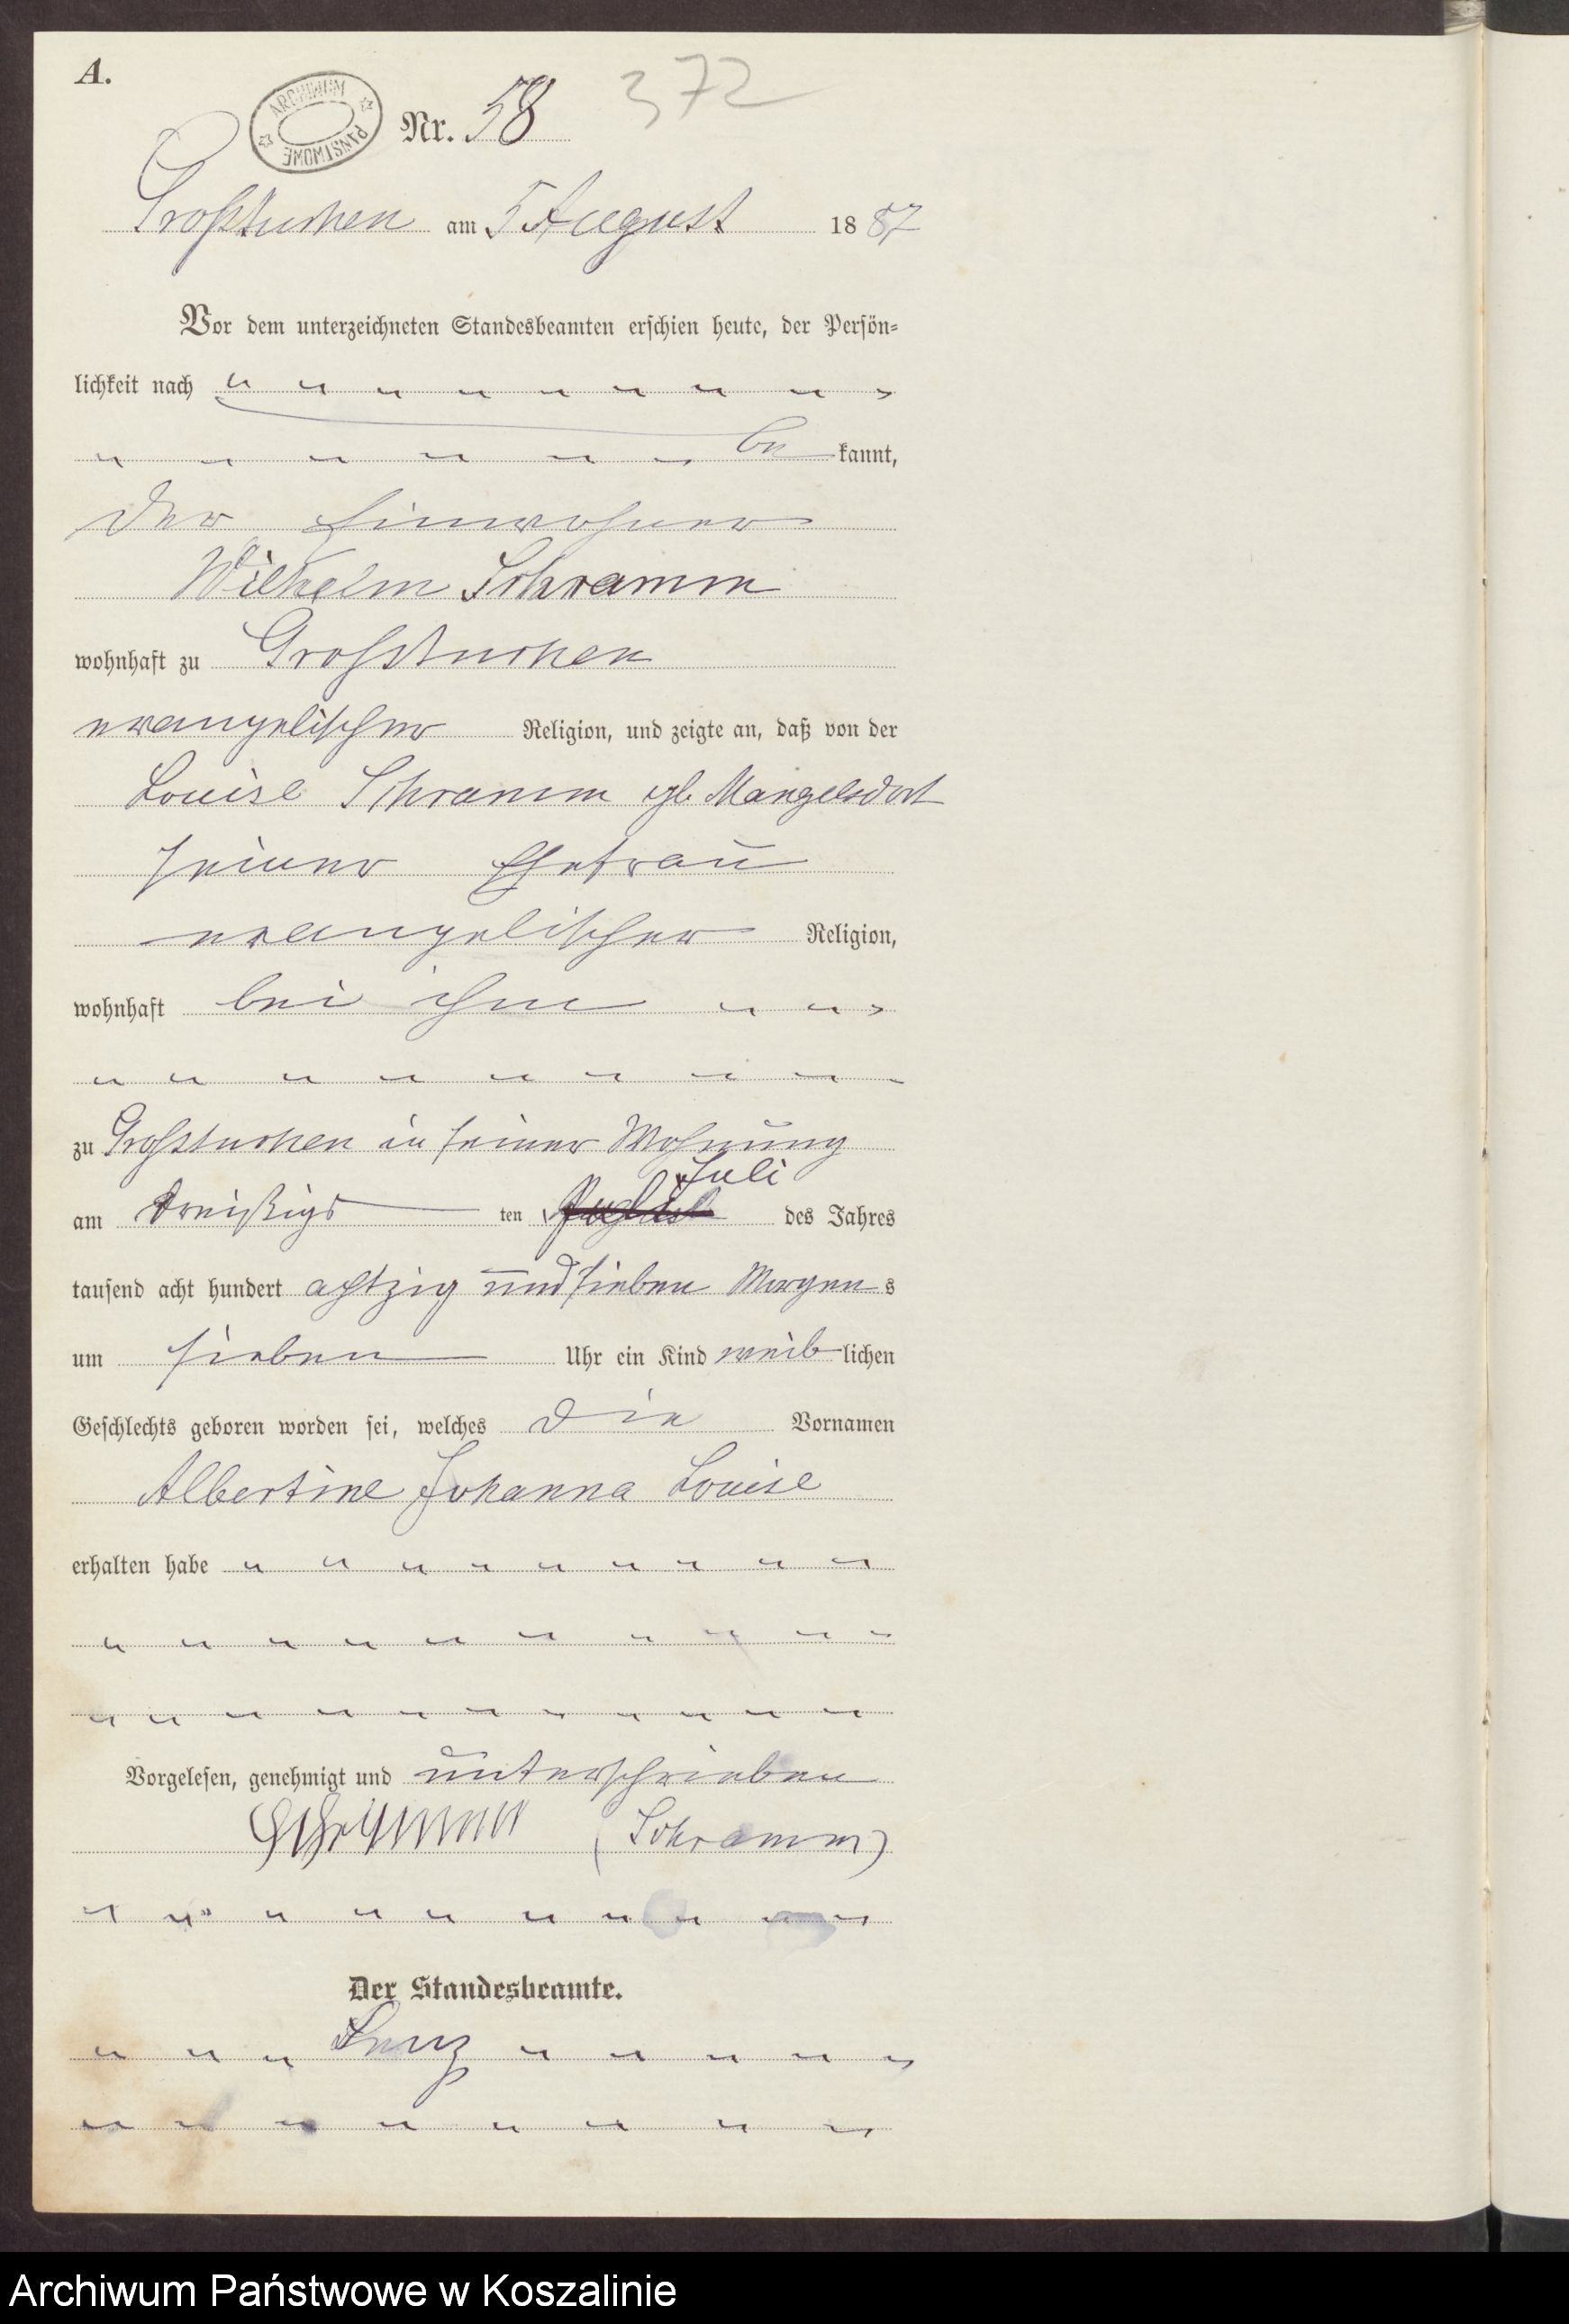 A.
ARCHIWUM PAŃSTWOWE
Nr. 58 372
Großtuchen am 5 August 1887
Vor dem unterzeichneten Standesbeamten erschien heute, der Persön-
lichkeit nach
be kannt,
der Einwohner
Wilhelm Schramm
wohnhaft zu Großtuchen
evangelischer Religion, und zeigte an, daß von der
Louise Schramm gb Mangelsdorf
seiner Ehefrau
evangelischer Religion,
wohnhaft bei ihm
zu Großtuchen in seiner Wohnung
Juli
am dreißigs ten August des Jahres
tausend acht hundert achtzig und sieben Morgens
um sieben Uhr ein Kind weiblichen
Geschlechts geboren worden sei, welches die Vornamen
Albertine Johanna Louise
erhalten habe
Vorgelesen, genehmigt und unterschrieben
Schramm (Schramm)
Der Standesbeamte.
Lenz
Archiwum Państwowe w Koszalinie